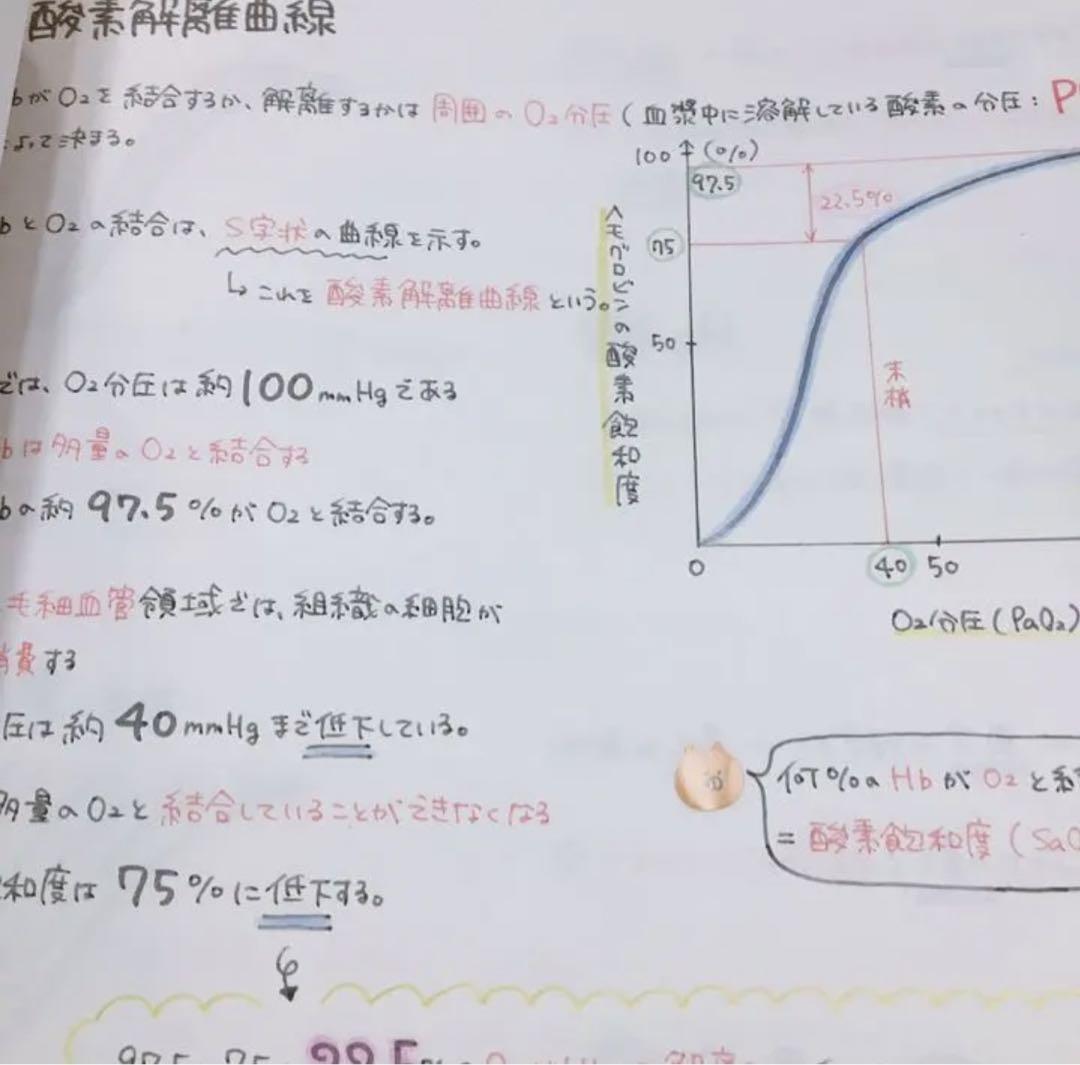 酸素解離曲線
bがO₂を結合するか、解離するかは 周囲のO₂分圧(血漿中に溶解している酸素の分圧: P
よって決まる。
bとO₂の結合は、S字状の曲線を示す。
↳これを 酸素解離曲線 という。
では、O₂分圧は約100mmHgである
bは多量のO₂と結合する
bの約97.5%がO₂と結合する。
毛細血管領域では、組織の細胞が
消費する
圧は約40mmHgまで低下している。
多量のO₂と結合していることができなくなる
和度は75%に低下する。
97.5 75 22.5%
100 (%)
97.5
22.5%
75
50
ヘモグロビンの酸素飽和度
末梢
0 40 50
O₂分圧(PaO₂)
何%のHbがO₂と結
=酸素飽和度(SaO